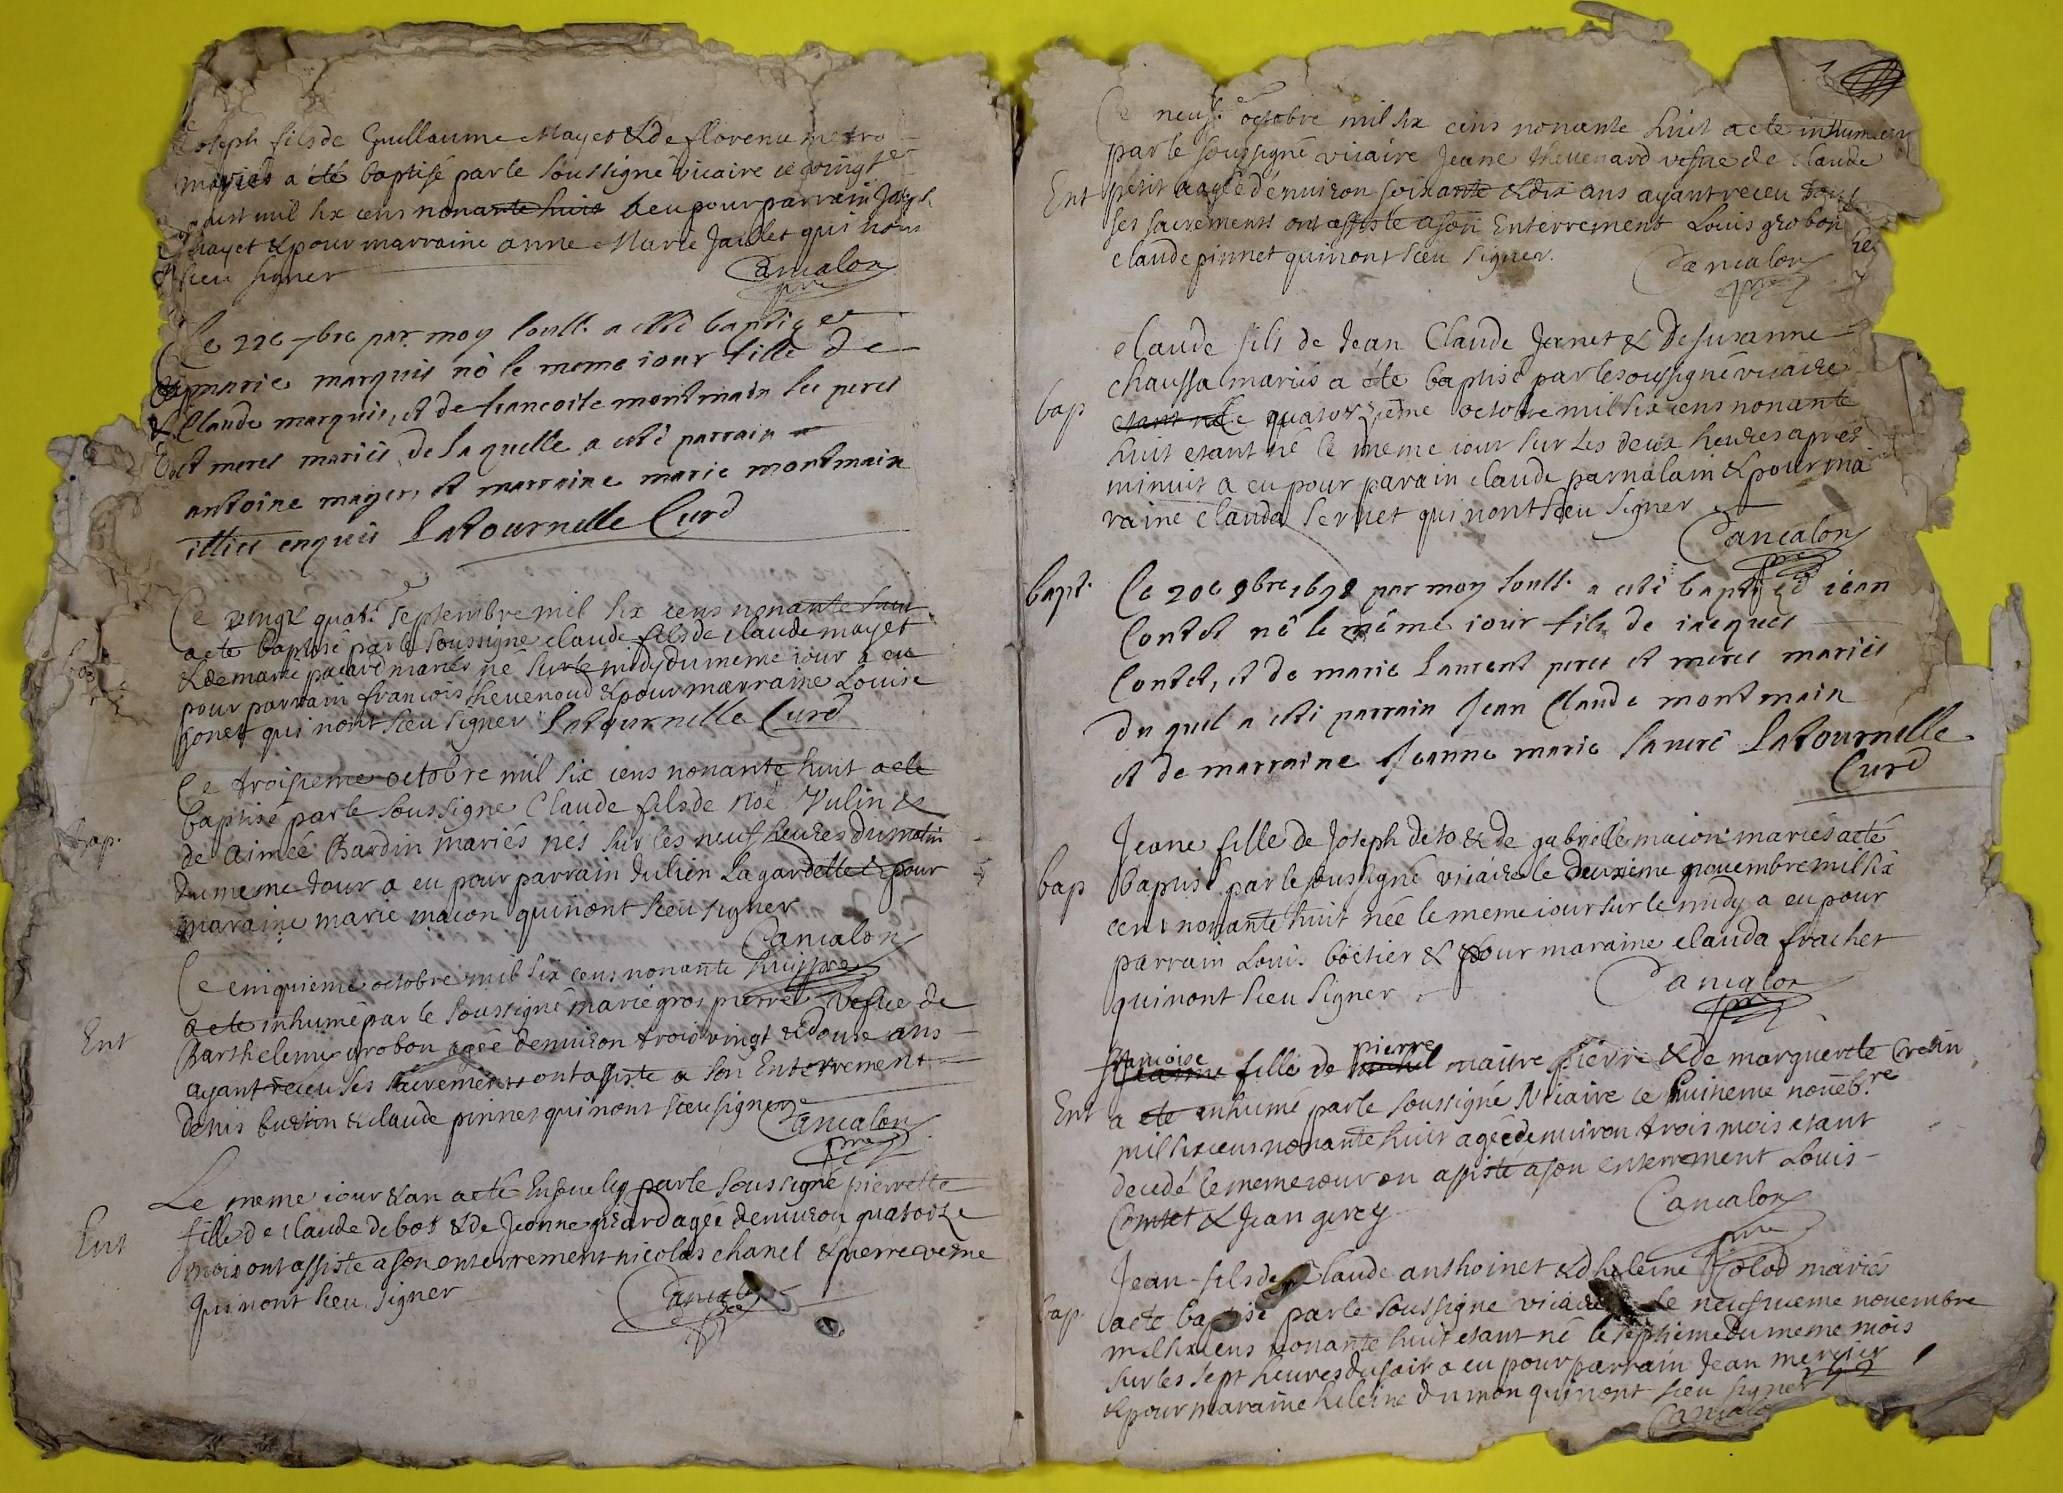 Joseph fils de Guillaume Mayet & de florence
mariés a été baptisé par le soussigné vicaire ce vingt
mil six cens nonante huit a eu pour parrain Joseph
mayet & pour marraine anne Marie Jaillet qui nont
sceu signer Cancalon
pre
Ce 22e 7bre par moy souss. a esté baptizee
marie marquis né le meme iour fille de
Claude marquis, et de francoise montmain ses peres
et meres mariés de laquelle a esté parrain
antoine mayer, et marraine marie montmain
illites enquis LaTournelle Curé
Ce vingt quat. septembre mil six cens nonante huit
bap
a ete baptisé par le soussigné claude fils de claude mayet
& de marie pacard mariés né sur le midy du meme iour a eu
pour parrain francois thevenoud & pour marraine Louise
jonet qui nont sceu signer LaTournelle Curé
Ce troisieme octobre mil six cens nonante huit a ete
bap.
baptisé par le soussigné Claude fils de Noé Vulin &
de Aimée Bardin mariés nés sur les neuf heures du matin
du meme Jour a eu pour parrain Julien Lagardette & pour
maraine marie macon qui nont sceu signer
Cancalon
pre
Ce cinquieme octobre mil six cens nonante huit
Ent
a ete inhumé par le soussigné marie gros pierre vefue de
Barthelemy grobon agée denuiron trois vingt & douse ans
ayant receu ses sacrements ont assisté a son Enterrement
denis burtin & claude pinnet qui nont sceu signer
Cancalon
pre
Le meme iour & an a eté Enseuely par le soussigné pierrette
Ent
fille de claude debost & de Jeanne girard agée denuiron quatorze
mois ont assisté a son enterrement nicolas chanel & pierre verne
qui nont sceu signer Cancalon
pre
Ce neuf. octobre mil six cens nonante huit a eté inhumée
par le soussigné vicaire Jeane thevenard vefue de claude
Ent
petit aagée denuiron soixante & dix ans ayant receu tous
ses sacrements ont assisté a son Enterrement Louis grobon
claude pinnet qui nont sceu signer.
Cancalon
pre
Claude fils de Jean Claude Janet & De susanne
chaussa mariés a été baptisé par le soussigné vicaire
bap
etant né le quatorzieme octobre mil six cens nonante
huit etant né le meme iour sur les deux heures apres
minuit a eu pour parain claude parnalain & pour ma
raine clauda servet qui nont sceu signer
Cancalon
pre
bapt.
Ce 20e 8bre 1698 par moy souss. a esté baptizé iean
Contet né le même iour fils de iacques
Contet, et de marie Laurent peres et meres mariés
du quel a esté parrain Jean Claude montmain
et de marraine Jeanne marie sancré LaTournelle
Curé
Jeane fille de Joseph deto & de gabrielle macon mariés a eté
bap
baptisé par le soussigné vicaire le deuxieme nouembre mil six
cens nonante huit née le meme iour sur le midy a eu pour
parrain Louis böetier & pour maraine clauda frachet
qui nont sceu signer Cancalon
pre
francoise pierre
Jeanne fille de michel maitre pierre & de marguerite Cretin
Ent
a eté inhumé par le soussigné Vicaire le huitieme nouēb.re
mil six cens nonante huit agée denuiron trois mois etant
decedé le meme iour on assisté a son enterrement Louis
Comtet & Jean gerey Cancalon
pre
Jean fils de Claude anthoinet & d heleine Golod mariés
bap
a eté baptisé par le soussigné vicaire le neufuieme novembre
mil six cens nonante huit etant né le septieme du meme mois
sur les sept heures du soir a eu pour parrain Jean mercier
& pour maraine heleine dumon qui nont sceu signer
Cancalon